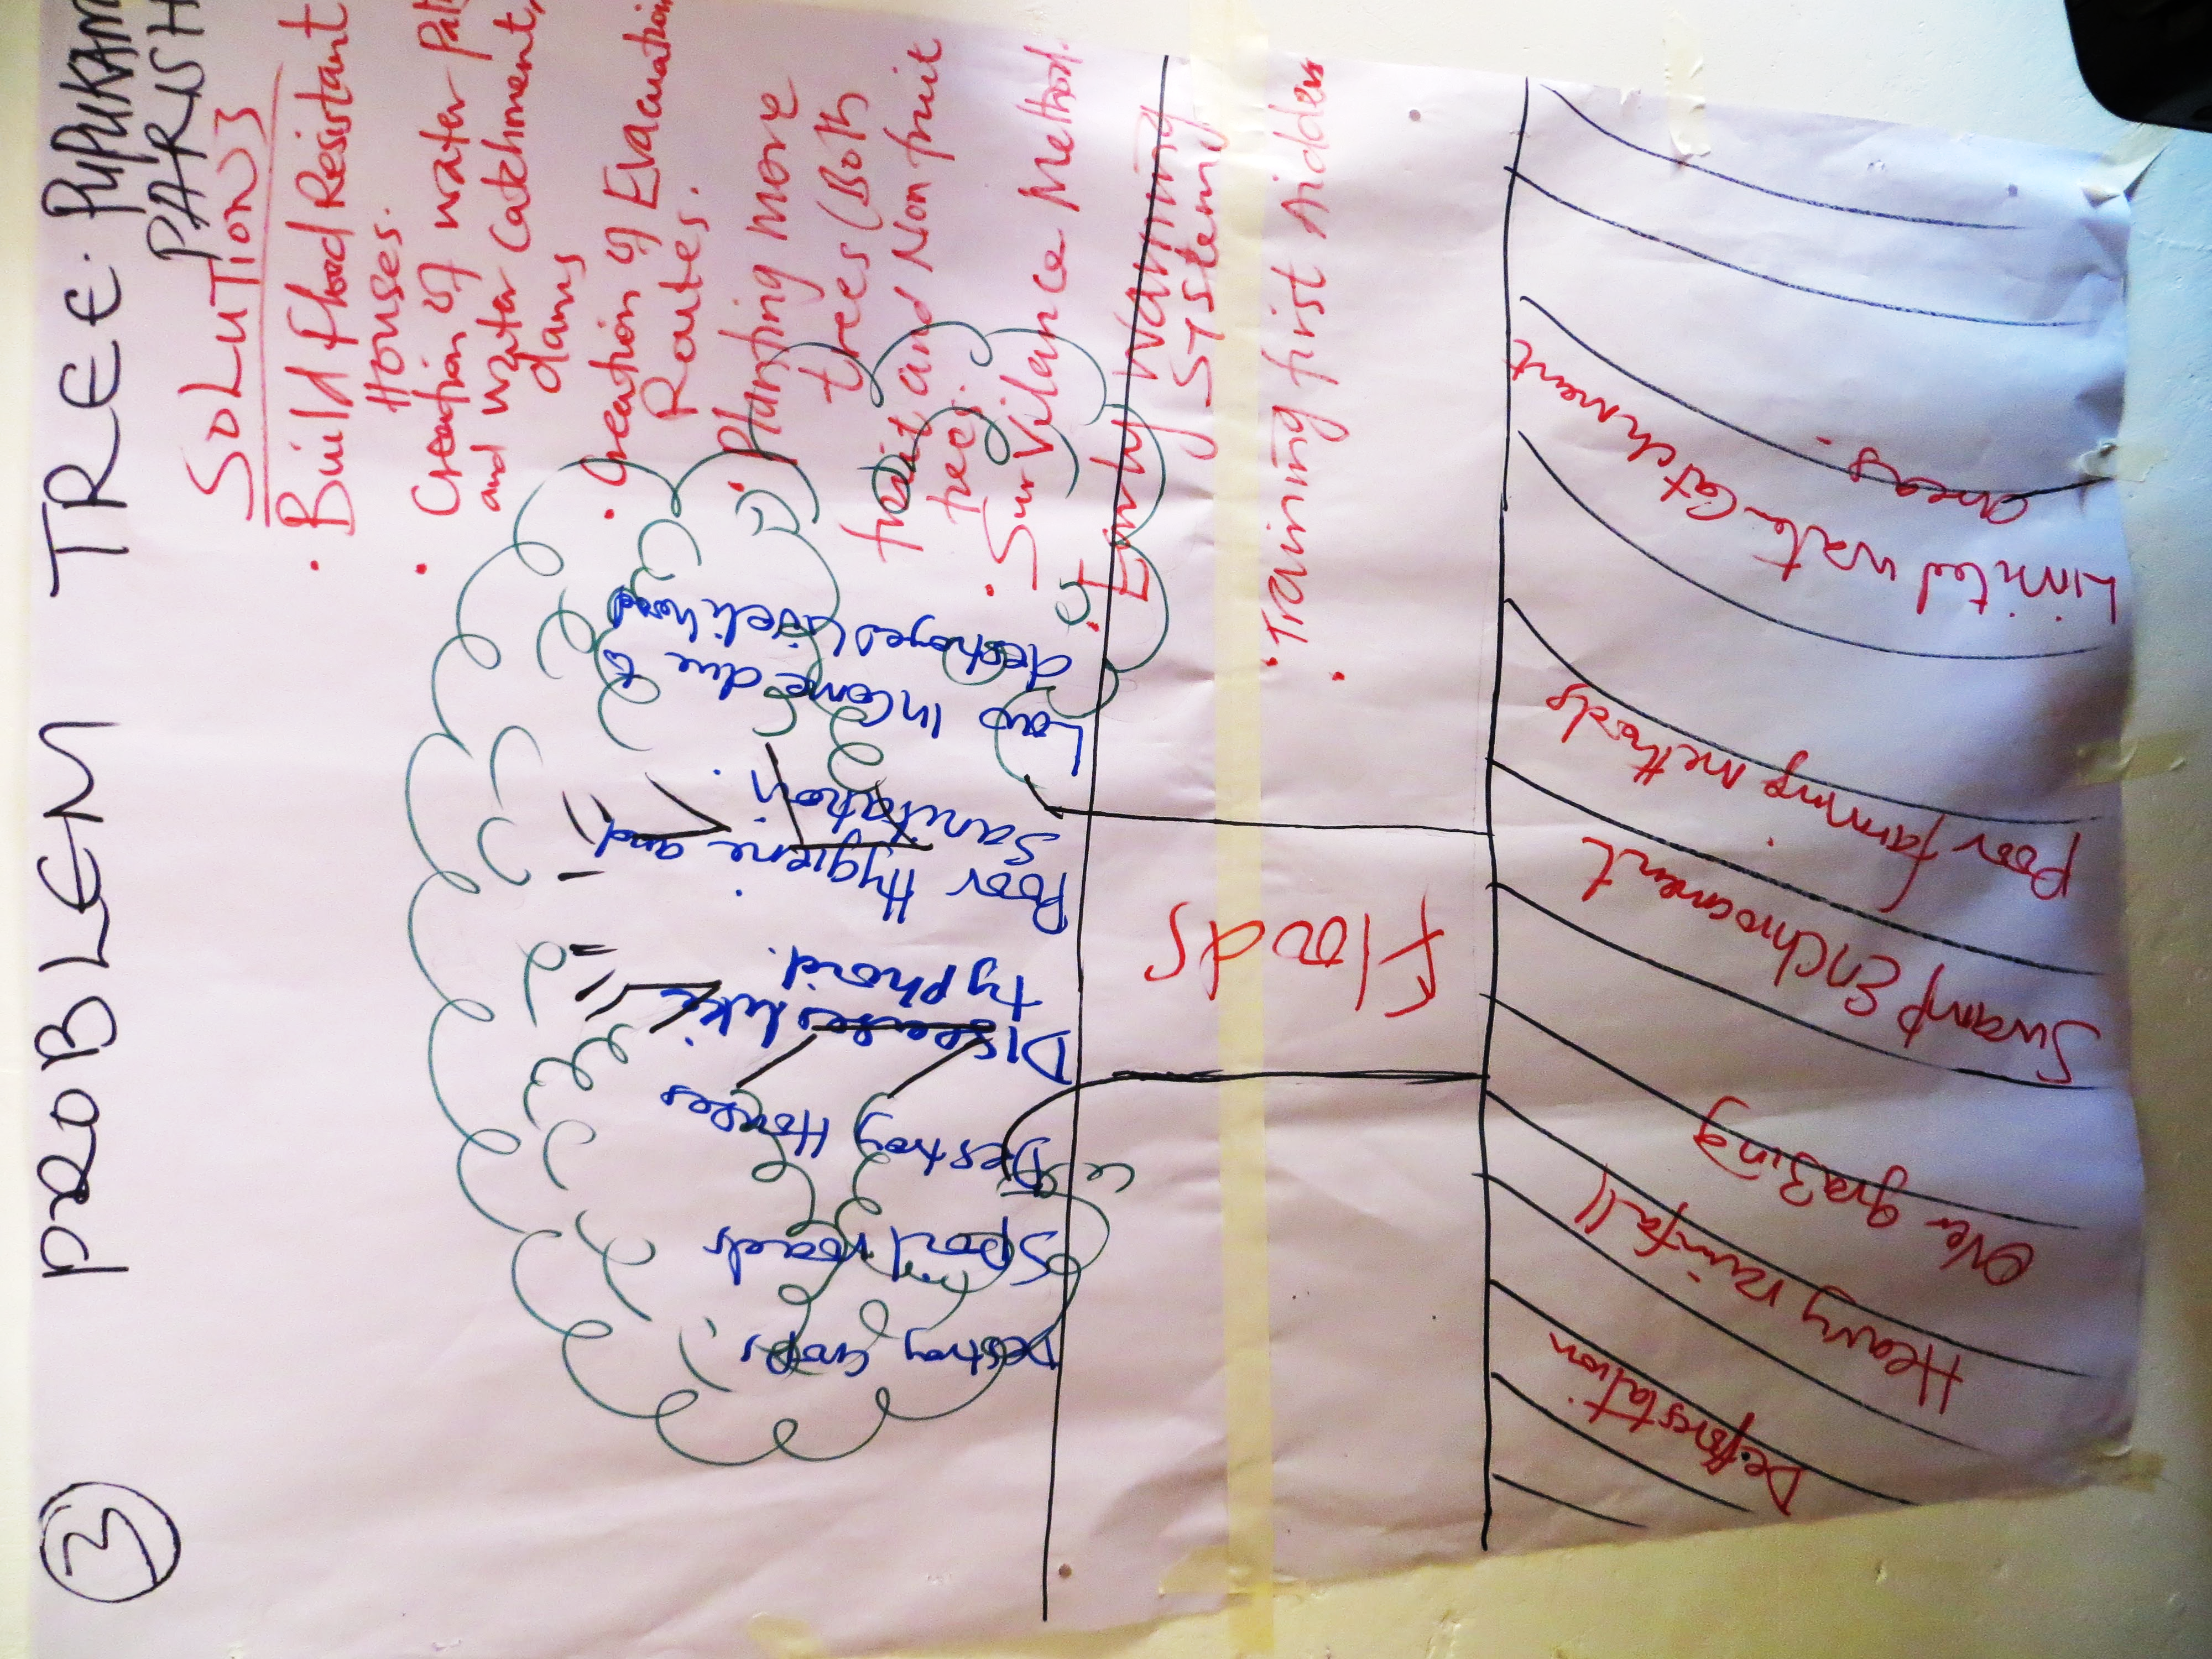 3 PROBLEM TREE: PUPUKAM
PARISH
SOLUTIONS
• Build flood Resistant
Houses.
• Creation of water Pat
and water Catchment,
dams
• Creation of Evacuation
Routes.
• Planting more
trees (Both
fruit and Non fruit
trees.
• Survilance Method.
• Early warning
Systems
• Training first Aiders
•
Destroy Crops
Spoil roads
Destroy Houses
Diseases like
typhoid.
Poor Hygiene and
Sanitation.
Low Income due to
destroyed livelihood
Floods
Deforestation
Heavy rainfall
Over grazing
Swamp Enchroament
Poor farming methods
Limited water Catchment
areas.